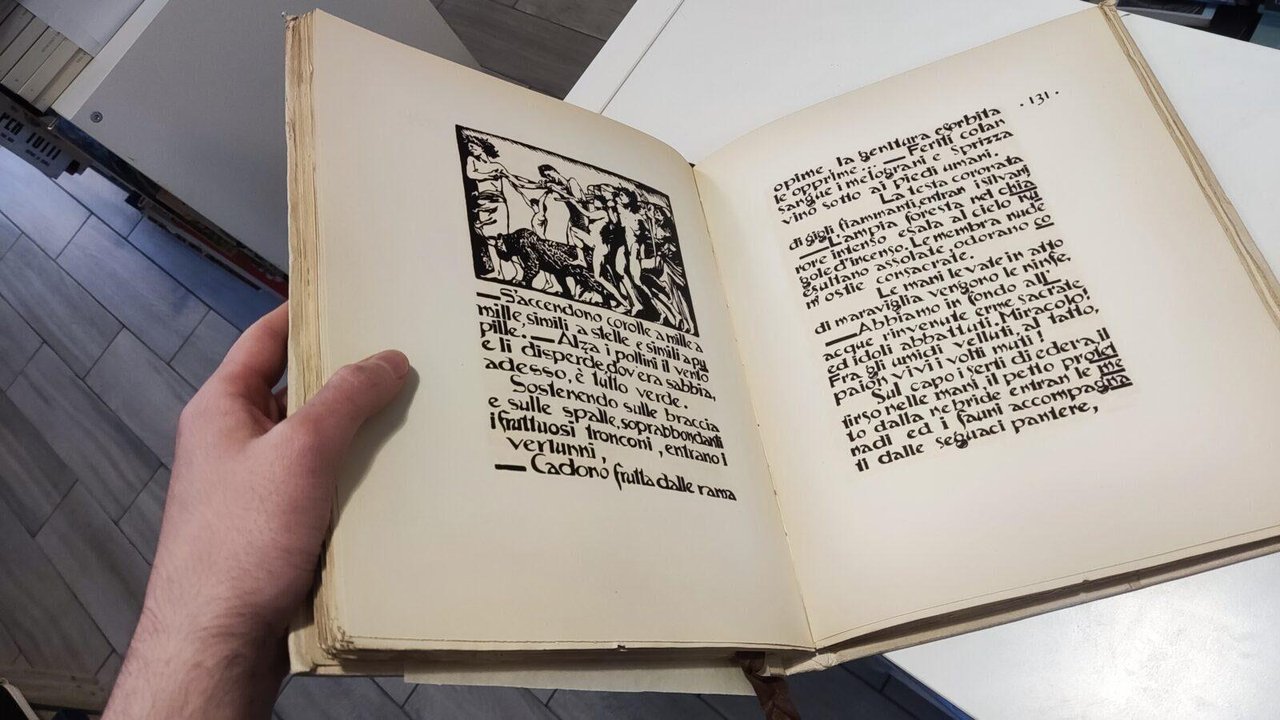 PER TUTTI
—S'accendono corolle a mille a
mille, simili a stelle e simili a pu
pille.—Alza i pollini il vento
e li disperde dov'era sabbia,
adesso, è tutto verde.
Sostenendo sulle braccia
e sulle spalle, soprabbondanti
i fruttuosi tronconi, entrano i
vertunni,
—Cadono frutta dalle rama
·131·
opime, la genitura esorbita
le opprime.—Feriti colan
sangue i melograni e sprizza
vino sotto ai piedi umani.
La testa coronata
di gigli fiammanti, entran i silvani
—L'ampia foresta nel chia
rore intenso esala al cielo nu
gole d'incenso. Le membra nude
esultano assolate, odorano co
m'ostie consacrate.
Le mani levate in atto
di maraviglia vengono le ninfe.
—Abbiamo in fondo all'
acque rinvenute erme sacrate
ed idoli abbattuti, Miracolo!
Fra gli umidi velluti, al tatto,
paion vivi i volti muti!
Sul capo i serti di edera, il
tirso nelle mani, il petto protet
to dalla nebride entran le me
nadi ed i fauni accompagna
ti dalle seguaci pantere,